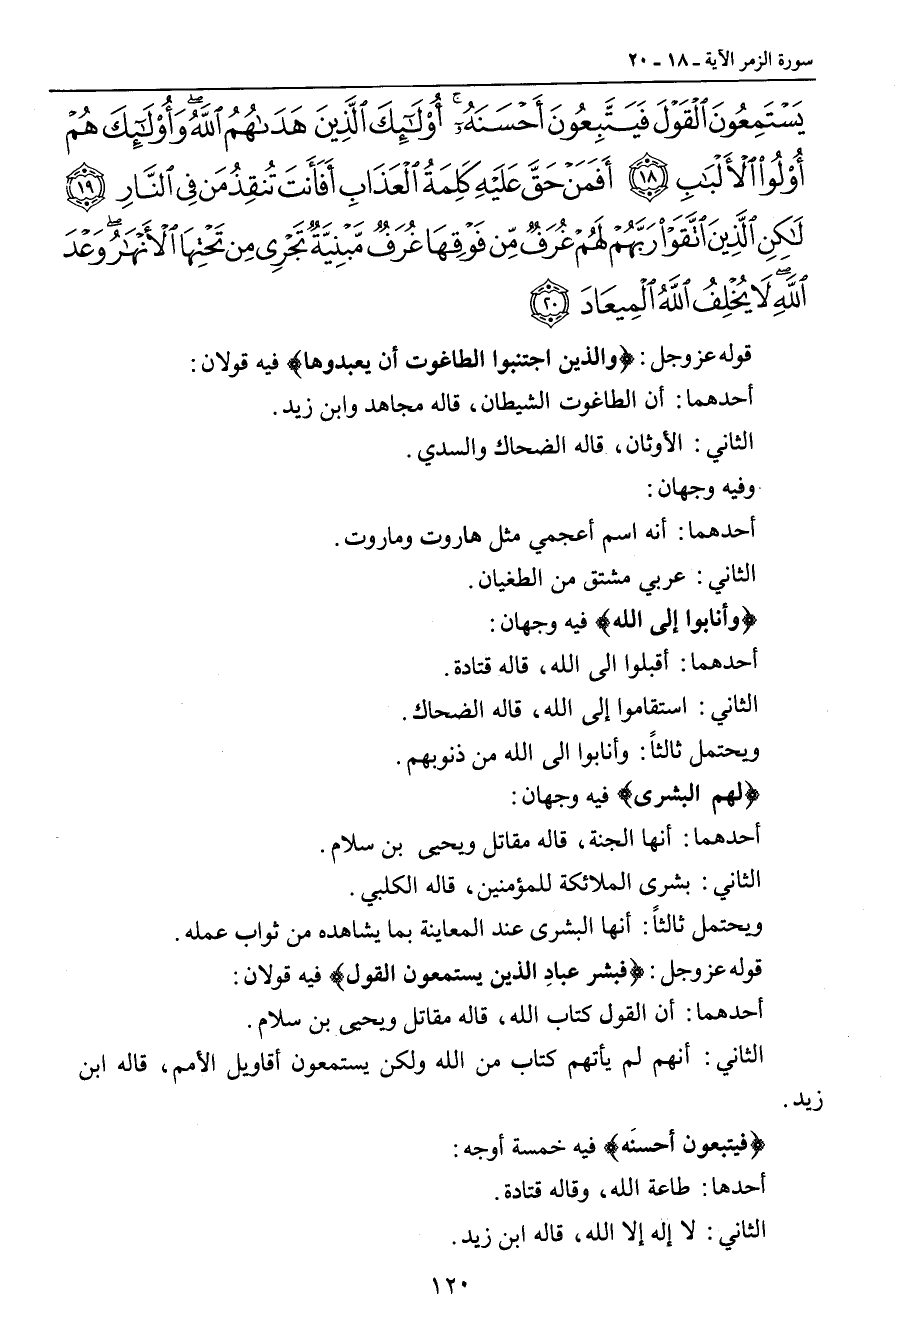 سورة الزمر الآية ـ ١٨ ـ ٢٠
يَسْتَمِعُونَ ٱلْقَوْلَ فَيَتَّبِعُونَ أَحْسَنَهُۥٓ ۚ أُو۟لَٰٓئِكَ ٱلَّذِينَ هَدَىٰهُمُ ٱللَّهُ ۖ وَأُو۟لَٰٓئِكَ هُمْ
أُو۟لُوا۟ ٱلْأَلْبَٰبِ ١٨ أَفَمَنْ حَقَّ عَلَيْهِ كَلِمَةُ ٱلْعَذَابِ أَفَأَنتَ تُنقِذُ مَن فِى ٱلنَّارِ ١٩
لَٰكِنِ ٱلَّذِينَ ٱتَّقَوْا۟ رَبَّهُمْ لَهُمْ غُرَفٌ مِّن فَوْقِهَا غُرَفٌ مَّبْنِيَّةٌ تَجْرِى مِن تَحْتِهَا ٱلْأَنْهَٰرُ ۖ وَعْدَ
ٱللَّهِ ۖ لَا يُخْلِفُ ٱللَّهُ ٱلْمِيعَادَ ٢٠
قوله عز وجل: ﴿والذين اجتنبوا الطاغوت أن يعبدوها﴾ فيه قولان:
أحدهما: أن الطاغوت الشيطان، قاله مجاهد وابن زيد.
الثاني: الأوثان، قاله الضحاك والسدي.
وفيه وجهان:
أحدهما: أنه اسم أعجمي مثل هاروت وماروت.
الثاني: عربي مشتق من الطغيان.
﴿وأنابوا إلى الله﴾ فيه وجهان:
أحدهما: أقبلوا الى الله، قاله قتادة.
الثاني: استقاموا إلى الله، قاله الضحاك.
ويحتمل ثالثاً: وأنابوا الى الله من ذنوبهم.
﴿لهم البشرى﴾ فيه وجهان:
أحدهما: أنها الجنة، قاله مقاتل ويحيى بن سلام.
الثاني: بشرى الملائكة للمؤمنين، قاله الكلبي.
ويحتمل ثالثاً: أنها البشرى عند المعاينة بما يشاهده من ثواب عمله.
قوله عز وجل: ﴿فبشر عبادِ الذين يستمعون القول﴾ فيه قولان:
أحدهما: أن القول كتاب الله، قاله مقاتل ويحيى بن سلام.
الثاني: أنهم لم يأتهم كتاب من الله ولكن يستمعون أقاويل الأمم، قاله ابن
زيد.
﴿فيتبعون أحسنَه﴾ فيه خمسة أوجه:
أحدها: طاعة الله، وقاله قتادة.
الثاني: لا إله إلا الله، قاله ابن زيد.
١٢٠